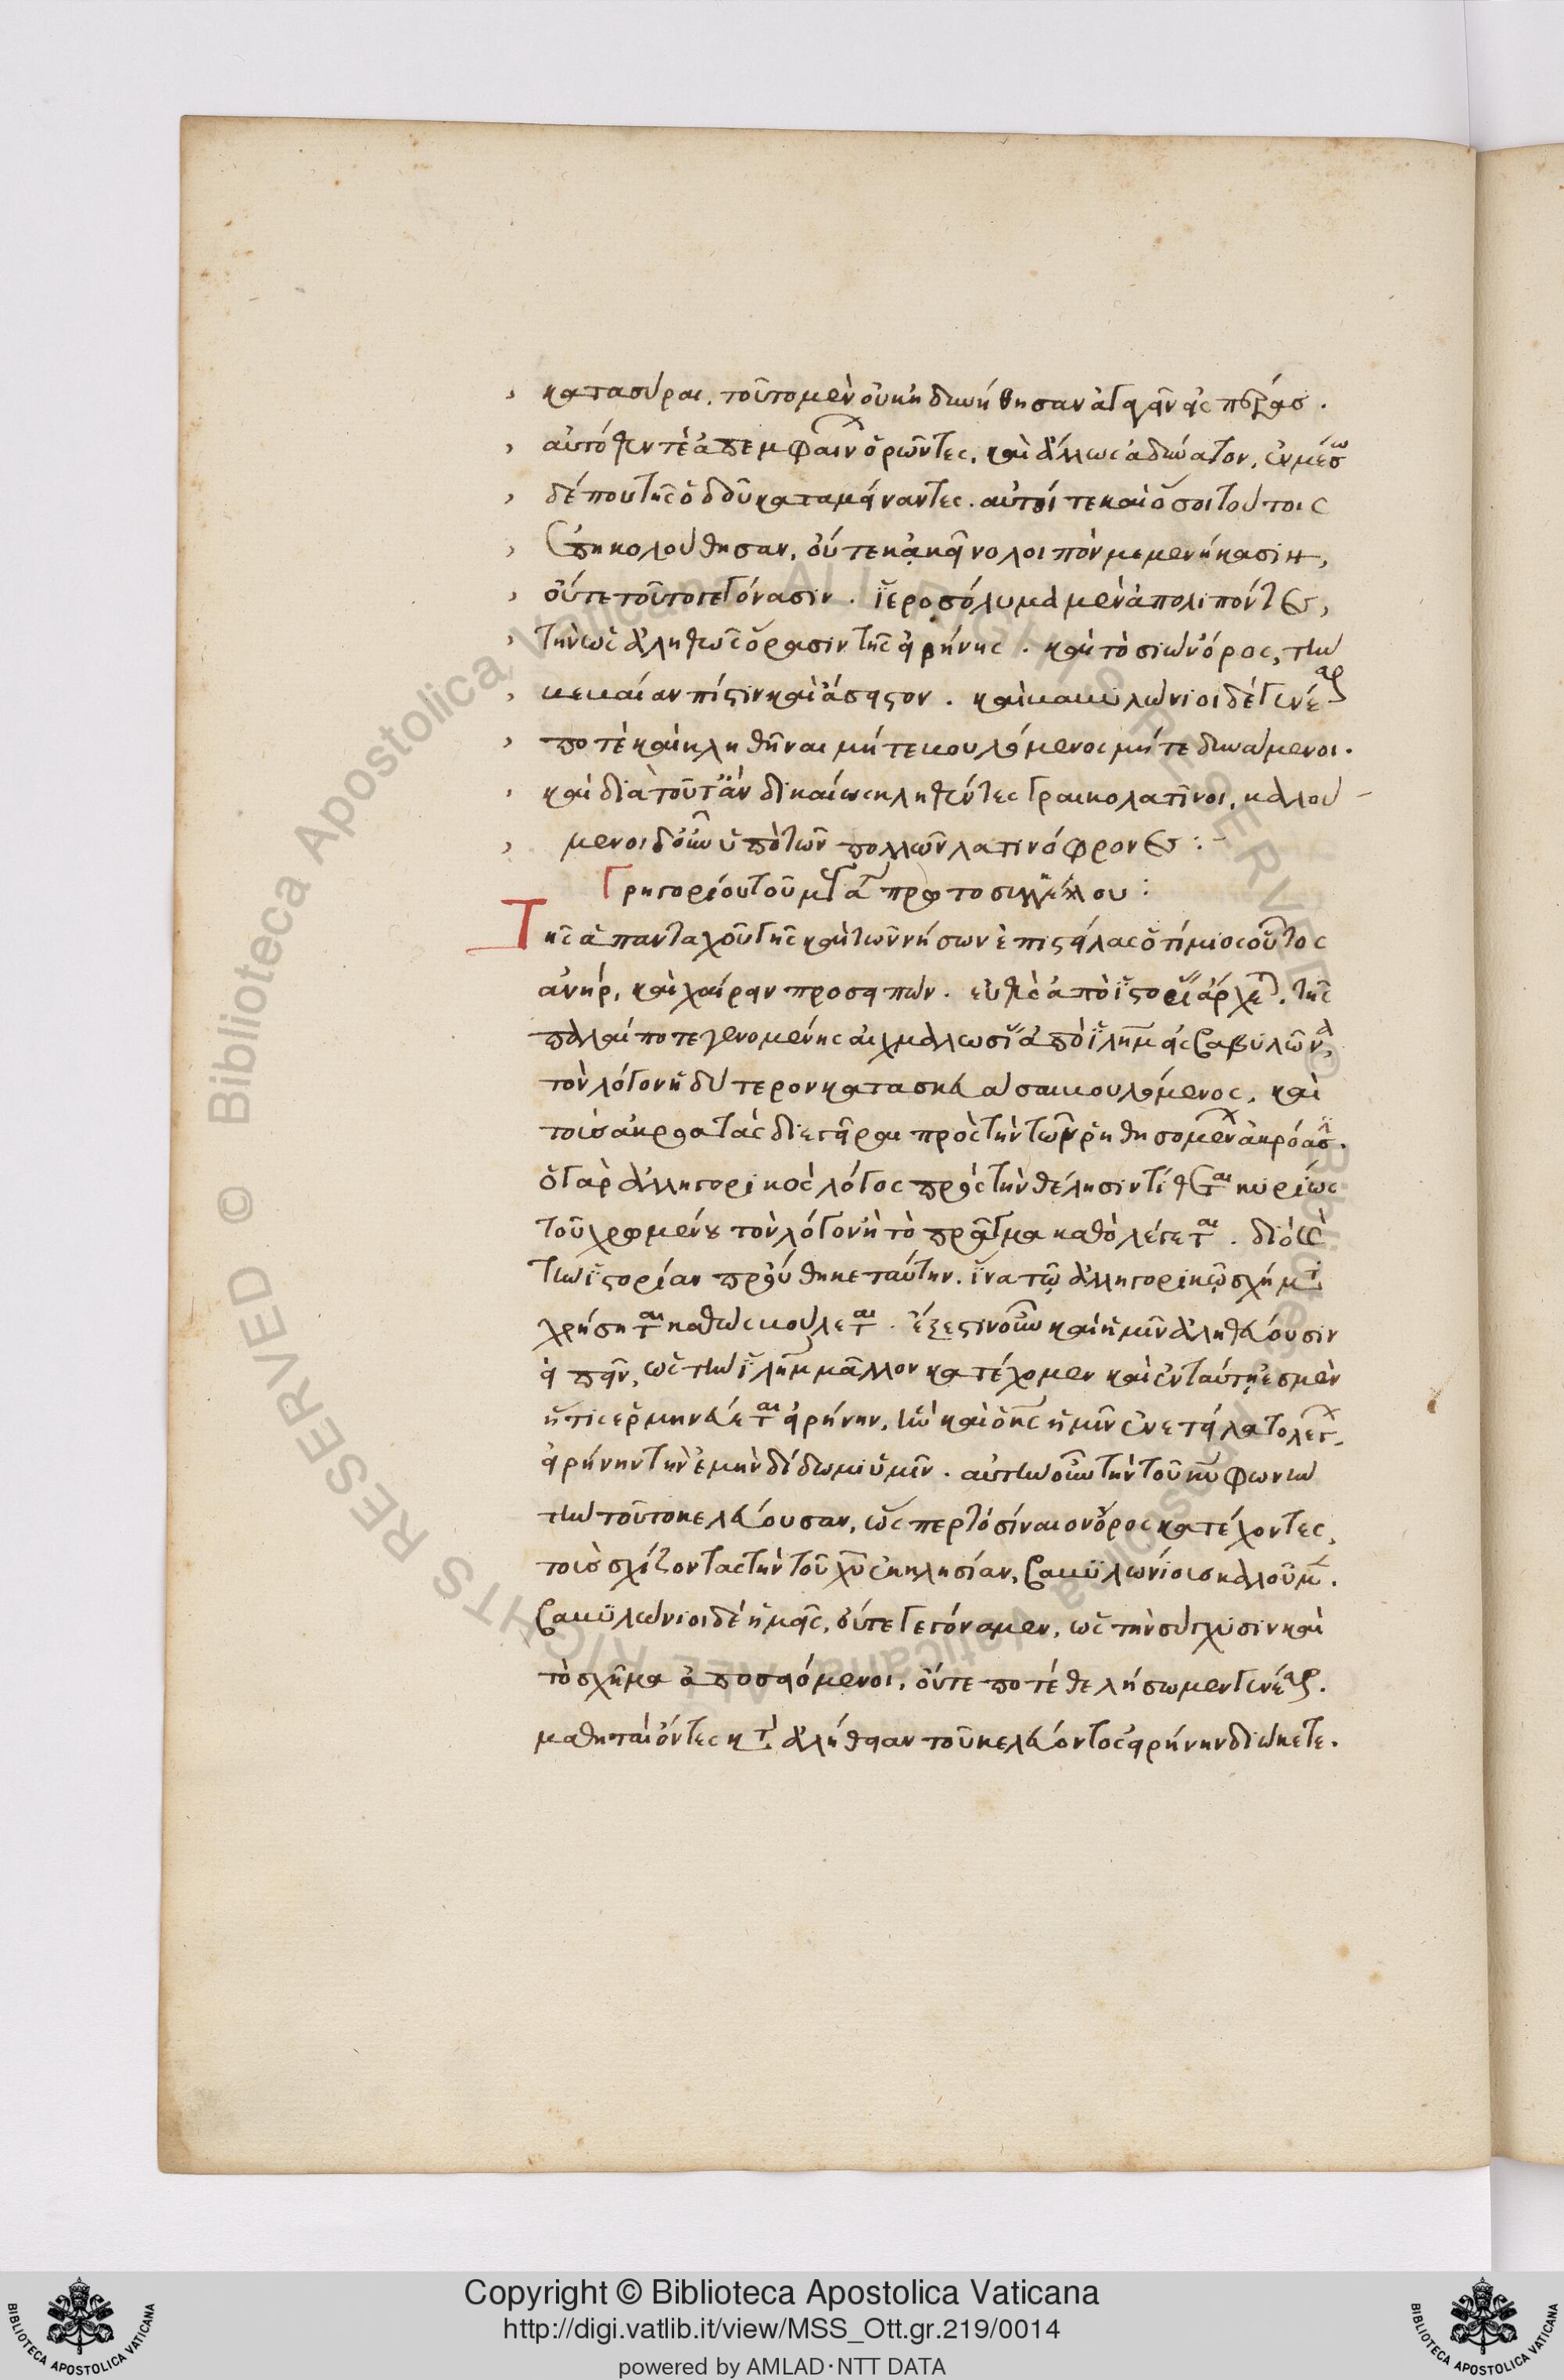 κατασύραι. τοῦτο μὲν οὐκ ἠδυνήθησαν ἀγαγεῖν εἰς πέρας.
αὐτόθεν τὲ ἀπεμφαῖνον ὁρῶντες, καὶ ἄλλως ἀδύνατον. ἐν μέσω
δέ που τῆς ὁδοῦ καταμείναντες. αὐτοί τε καὶ ὅσοι τούτοις
ἐπηκολούθησαν, οὔτε κἀκεῖνο λοιπὸν μεμενήκασιν,
οὔτε τοῦτο γεγόνασιν. ἱεροσόλυμα μὲν ἀπολιπόντες,
τὴν ὡς ἀληθῶς ὅρασιν τῆς εἰρήνης. καὶ τὸ σιὼν ὄρος, τὴν
βεβαίαν πίστιν καὶ ἄσειστον. καὶ βαβυλώνιοι δὲ γενέσθαι
ποτὲ καὶ κληθῆναι μήτε βουλόμενοι μήτε δυνάμενοι.
καὶ διὰ τοῦτ' ἂν δικαίως κληθέντες γραικολατῖνοι, καλού-
μενοι δ' οὖν ὑπὸ τῶν πολλῶν λατινόφρονες :-
Γρηγορίου τοῦ μεγάλου πρωτοσυγκέλλου :
Τῆς ἁπανταχοῦ γῆς καὶ τῶν νήσων ἐπιστείλας ὁ τίμιος οὗτος
ἀνήρ, καὶ χαίρειν προσειπών. εὐθὺς ἀπὸ ἱστορίας ἄρχεται. τῆς
πάλαι ποτὲ γενομένης αἰχμαλωσίας ἀπὸ ἱλημ εἰς βαβυλῶνα,
τὸν λόγον ἡδύτερον κατασκευάσαι βουλόμενος. καὶ
τοὺς ἀκροατὰς διεγεῖραι πρὸς τὴν τῶν ῥηθησομένων ἀκρόασιν.
ὁ γὰρ ἀλληγορικὸς λόγος πρὸς τὴν θέλησιν τίθεται κυρίως
τοῦ χρωμένου τὸν λόγον ἢ τὸ πρᾶγμα καθὸ λέγεται. διὸ καὶ
τὴν ἱστορίαν προύθηκε ταύτην. ἵνα τῷ ἀλληγορικῷ σχήματι
χρήσηται καθὼς βούλεται. ἔξεστιν οὖν καὶ ἡμῖν ἀληθεύουσιν
εἰπεῖν, ὡς τὴν ἱλημ μᾶλλον κατέχομεν καὶ ἐν ταύτῃ ἐσμὲν
ἥτις ἑρμηνεύεται εἰρήνην, ἣν καὶ ὁ κς ἡμῖν ἐνετείλατο λέγων.
εἰρήνην τὴν ἐμὴν δίδωμι ὑμῖν. αὐτὴν οὖν τὴν τοῦ κυ φωνὴν
τὴν τοῦτο κελεύουσαν, ὥσπερ τὸ σίναιον ὄρος κατέχοντες,
τοὺς σχίζοντας τὴν τοῦ χυ ἐκκλησίαν, βαβυλωνίους καλοῦμεν.
βαβυλώνιοι δὲ ἡμεῖς, οὔτε γεγόναμεν, ὡς τὴν σύγχυσιν καὶ
τὸ σχῆμα ἀποσειόμενοι, οὔτε ποτὲ θελήσωμεν γενέσθαι.
μαθηταὶ ὄντες κατὰ ἀλήθειαν τοῦ κελεύοντος εἰρήνην διώκετε.
Copyright © Biblioteca Apostolica Vaticana
http://digi.vatlib.it/view/MSS_Ott.gr.219/0014
powered by AMLAD·NTT DATA